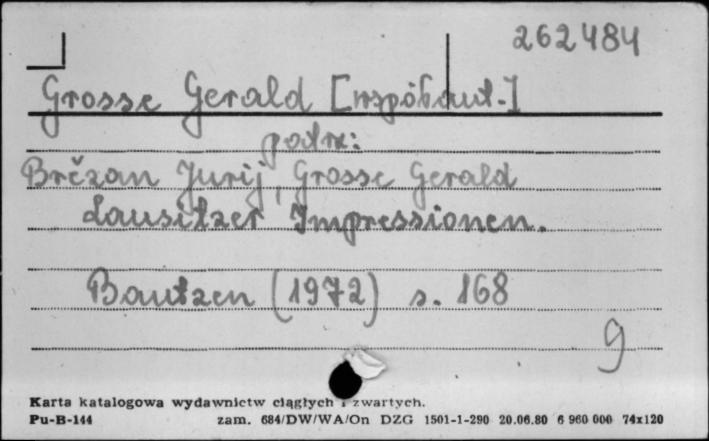 262484
Grosse Gerald [współaut.]
patrz:
Brězan Jurij, Grosse Gerald
Lausitzer Impressionen.
Bautzen (1972) s. 168
g
Karta katalogowa wydawnictw ciągłych i zwartych.
Pu-B-144 zam. 684/DW/WA/On DZG 1501-1-290 20.06.80 6 960 000 74x120